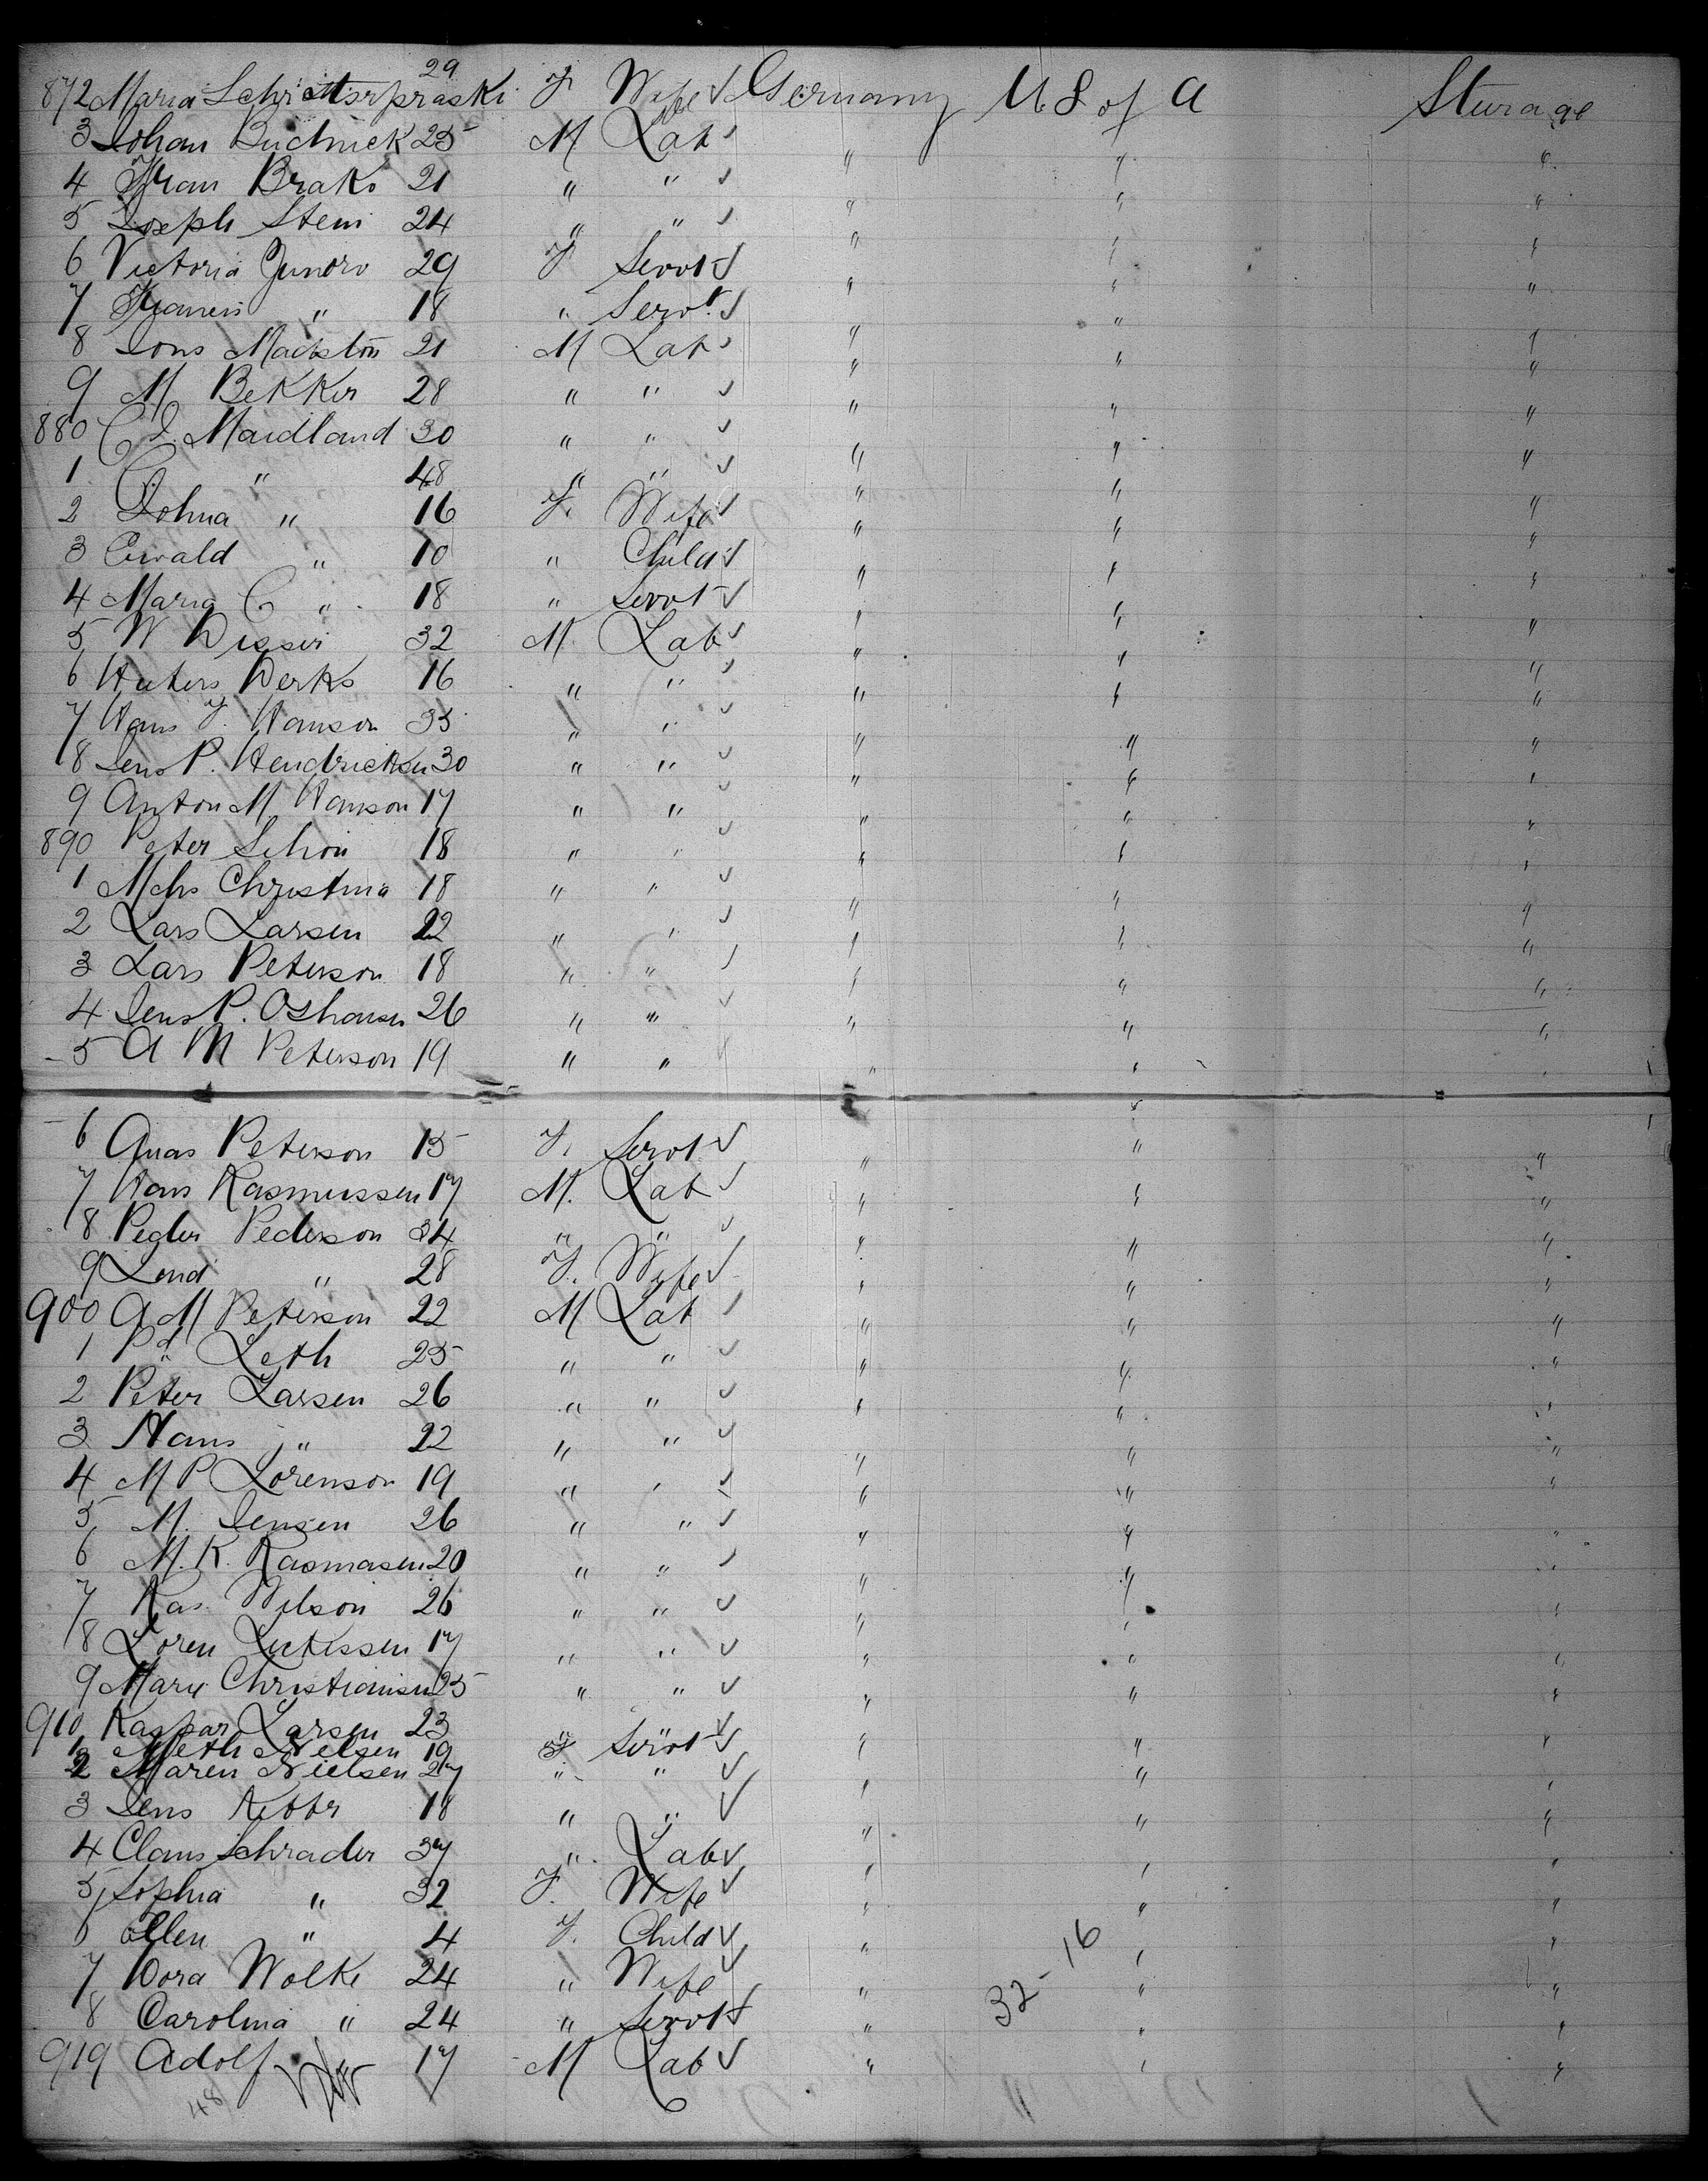 872 Maria 29 F. Wife ✓ Germany U S of A Sturage
3 Johan Budnick 25 M Lab ✓ " " "
4 Fran Brako 21 " " ✓ " " "
5 Joseph Stem 24 " " ✓ " " "
6 Victoria 29 F Servt ✓ " " "
7 " 18 " Servt. ✓ " " "
8 Mackston 21 M Lab ✓ " " "
9 M Bekker 28 " " ✓ " " "
880 C J. Maidland 30 " " ✓ " " "
1 C " 48 " " ✓ " " "
2 Johna " 16 F. Wife ✓ " " "
3 Ewald " 10 " Child ✓ " " "
4 Maria C " 18 " Servt ✓ " " "
5 W Disser 32 M. Lab ✓ " " "
6 Derks 16 " " ✓ " " "
7 Hans J. Hanson 35 " " ✓ " " "
8 Jens P. Hendricksen 30 " " ✓ " " "
9 Anton M Hanson 17 " " ✓ " " "
890 Peter Schon 18 " " ✓ " " "
1 Mchs Christina 18 " " ✓ " " "
2 Lars Larsen 22 " " ✓ " " "
3 Lars Peterson 18 " " ✓ " " "
4 Jens P. 26 " " ✓ " " "
5 A M Peterson 19 " " ✓ " " "
6 Anas Peterson 15 F. Servt ✓ " " "
7 Hans Rasmussen 17 M. Lab ✓ " " "
8 Peder Pederson 34 " " ✓ " " "
9 " 28 F. Wife ✓ " " "
900 A M Peterson 22 M Lab ✓ " " "
1 Leth 25 " " ✓ " " "
2 Peter Larsen 26 " " ✓ " " "
3 Hans " 22 " " ✓ " " "
4 M P Lorenson 19 " " ✓ " " "
5 M. Jensen 26 " " ✓ " " "
6 M. K. Rasmasen 20 " " ✓ " " "
7 Ras. 26 " " ✓ " " "
8 Loren 17 " " ✓ " " "
9 Marie Christiansen 25 " " ✓ " " "
910 Kaspar Larsen 23 ✓
1 Meth Nelsen 19 F Servt ✓ " " "
2 Maren Nielsen 27 " " ✓ " " "
3 Jens 18 " " ✓ " " "
4 Claus Schrader 37 " Lab ✓ " " "
5 Sophia " 32 F. Wife ✓ " " "
6 Ellen " 4 F. Child ✓ " " "
7 Dora Wolke 24 " Wife ✓ " " "
8 Carolina " 24 " Servt ✓ " " "
919 Adolf 17 M Lab ✓ " " "
32-16
48